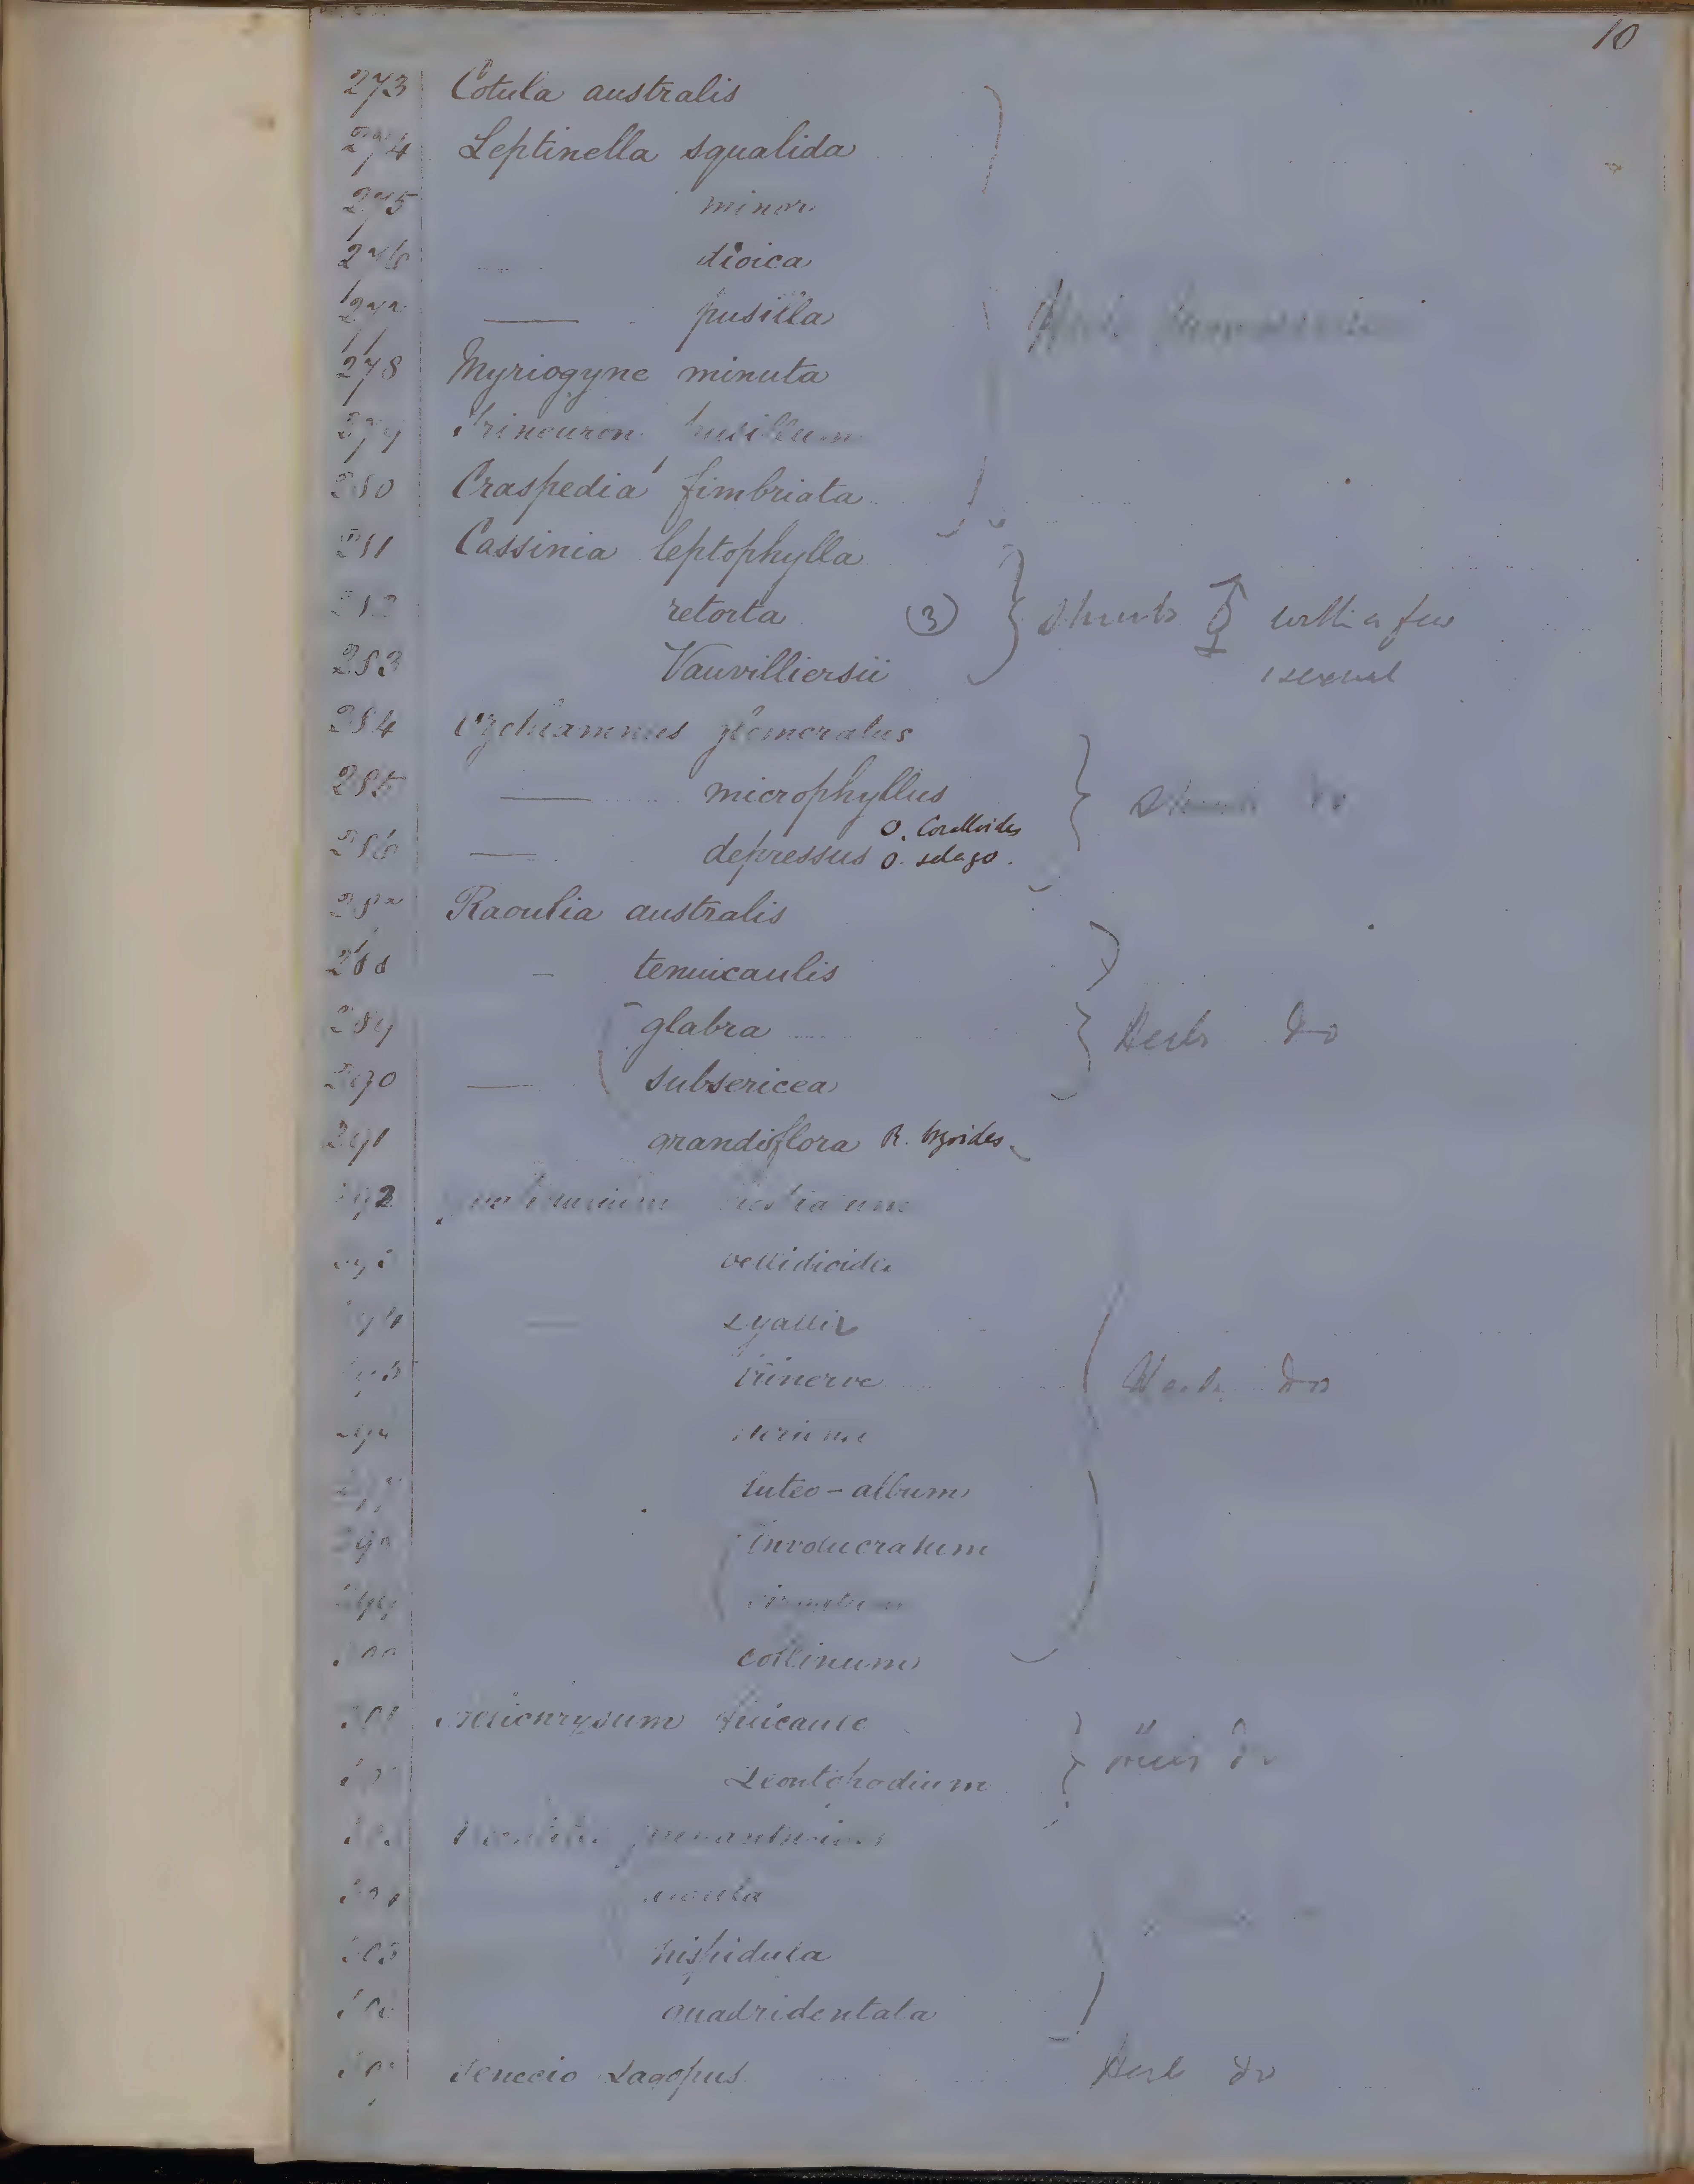 10
273 Cotula australis
274 Leptinella squalida
275 minor
276 dioica
277 — pusilla
278 Myriogyne minuta
279 Trineuron pusillum
280 Craspedia fimbriata
281 Cassinia leptophylla
282 retorta (3) Shrubs ⚥ with a few
283 Vauvilliersii 1 sexual
284 Ozothamnus glomeratus
285 — microphyllus Shrub Do
O. Coralloides
286 — depressus O. selago.
287 Raoulia australis
288 - tenuicaulis
289 glabra Herb Do
290 — subsericea
291 grandiflora R. bryoides
292 Gnaphalium
293 bellidioides
294 — Lyallii
295 trinerve Herb Do
296
297 luteo-album
298 involucratum
299
300 collinum
301 Helichrysum filicaule
302 Leontopodium
303
304
305 hispidula
306 quadridentata
307 Senecio Lagopus Herb Do